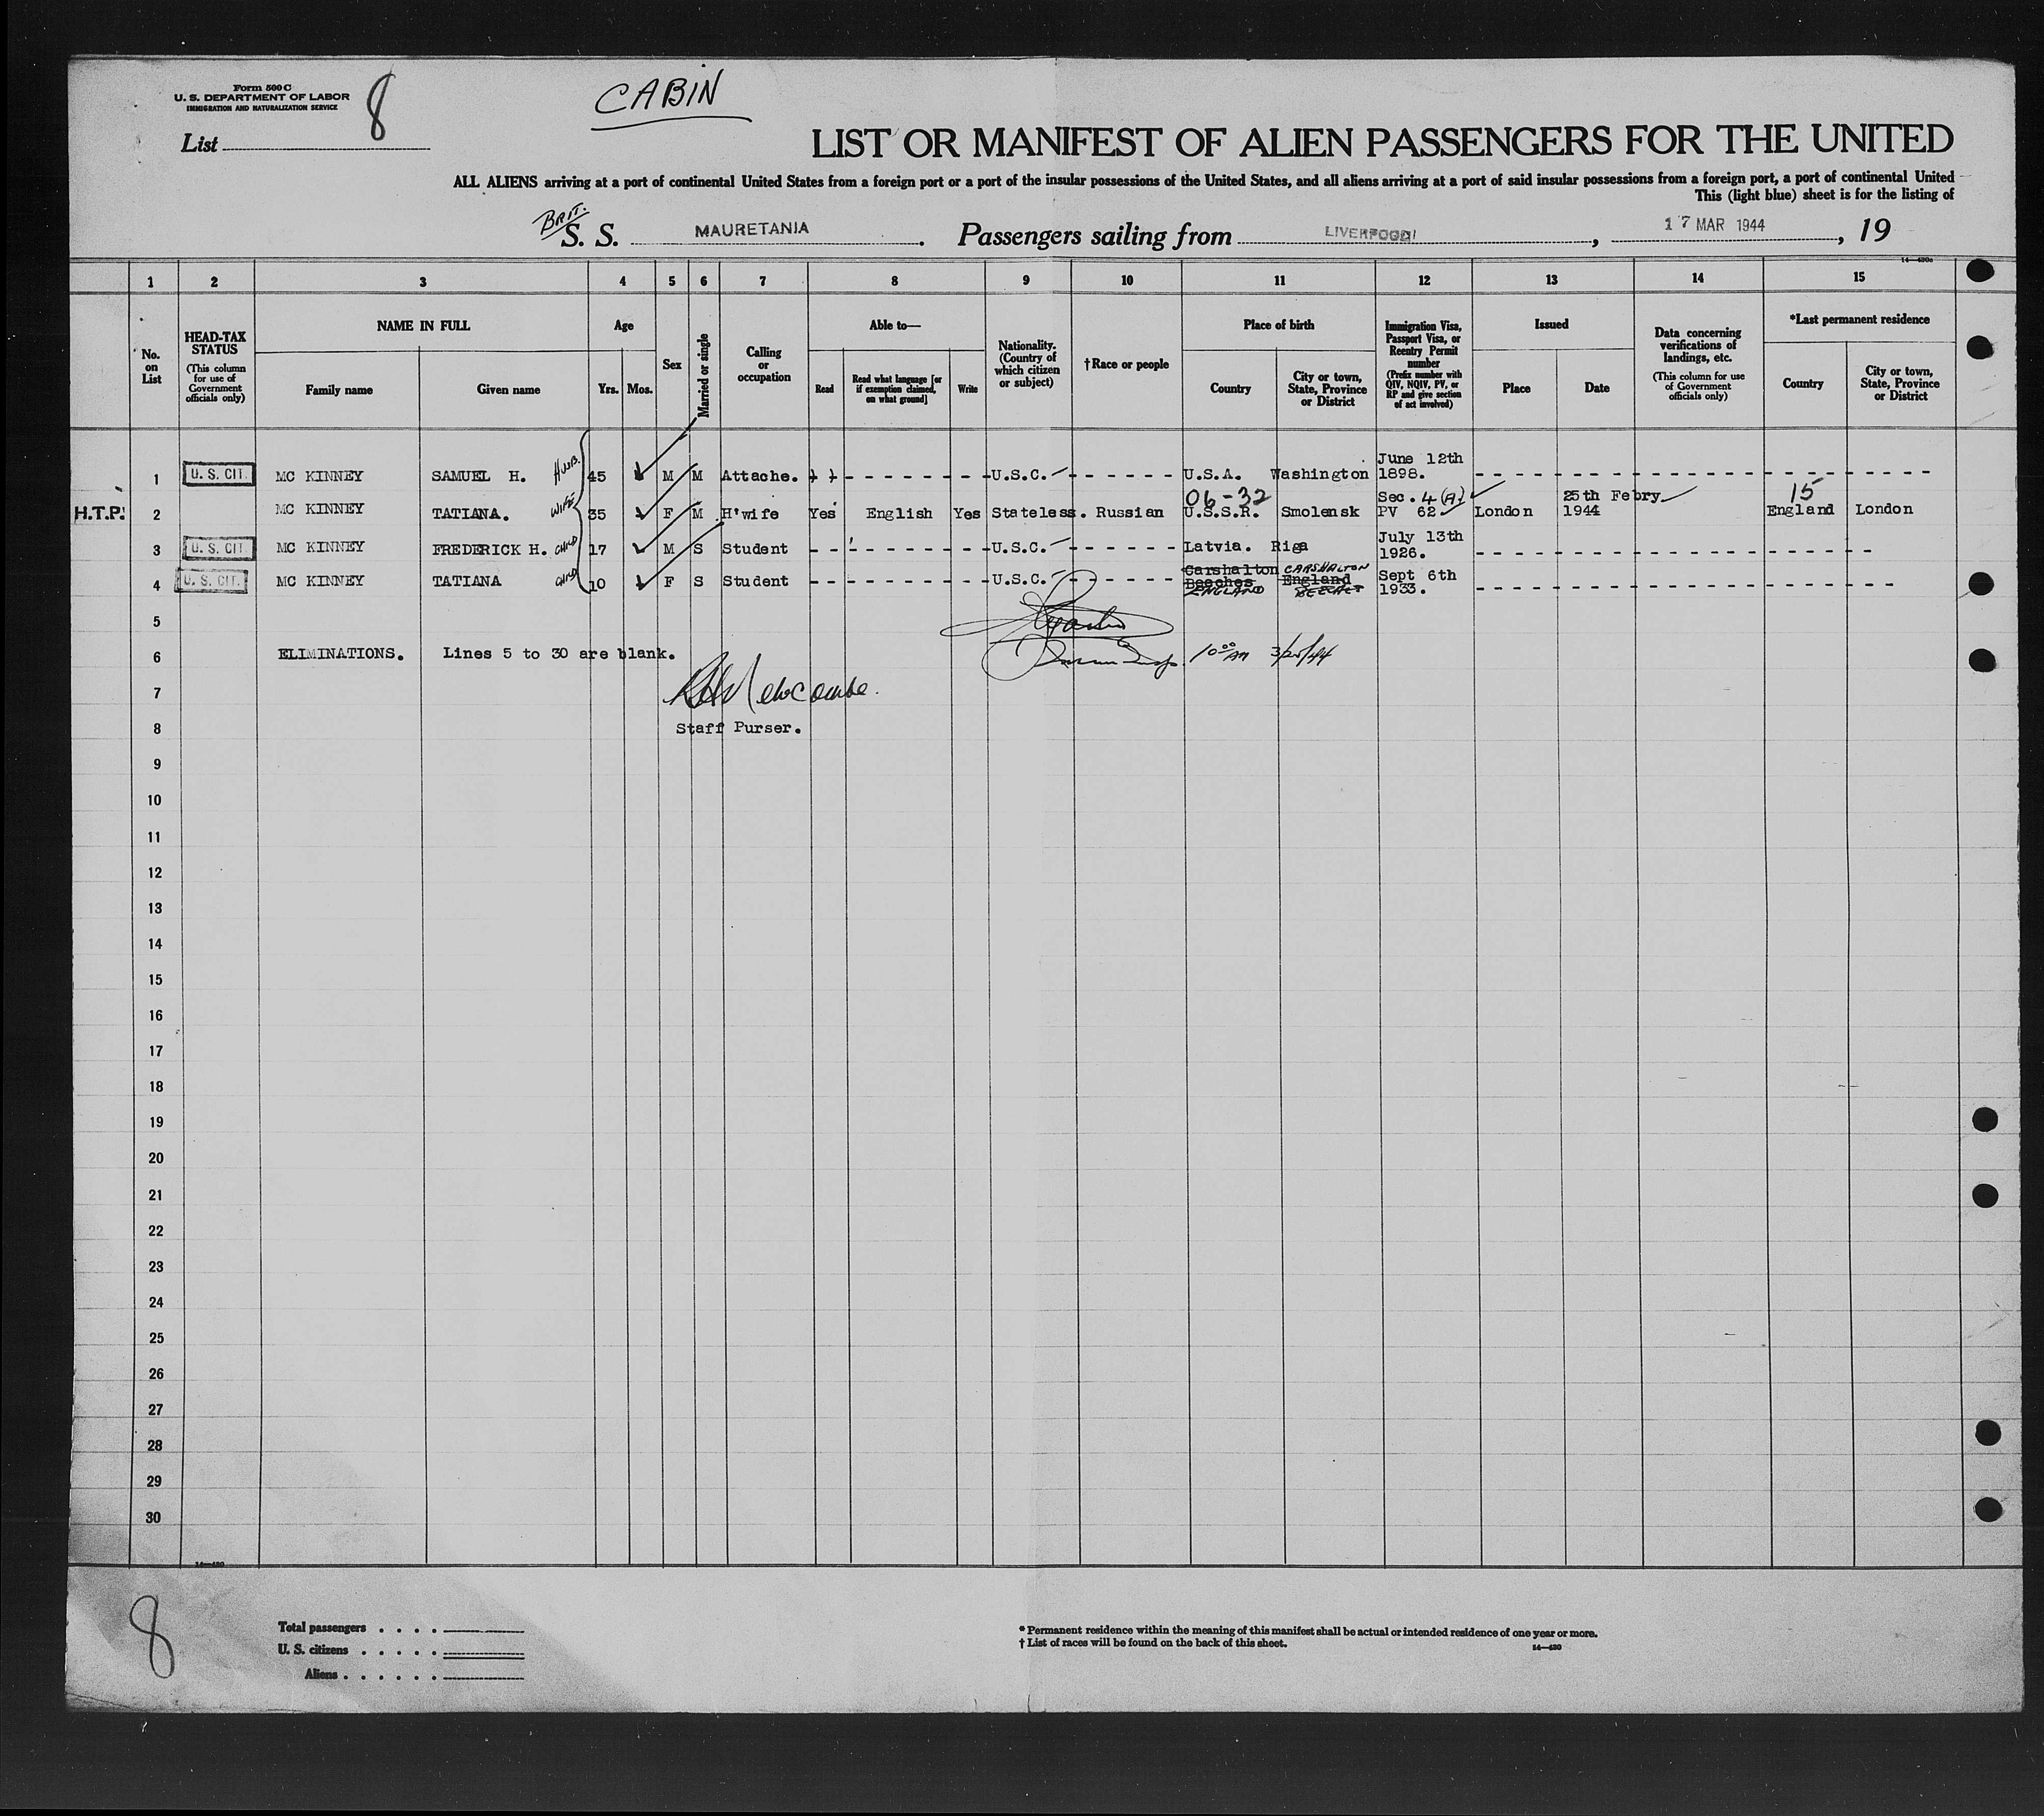 Form 500 C
U. S. DEPARTMENT OF LABOR
IMMIGRATION AND NATURALIZATION SERVICE
List 8
CABIN
LIST OR MANIFEST OF ALIEN PASSENGERS FOR THE UNITED
ALL ALIENS arriving at a port of continental United States from a foreign port or a port of the insular possessions of the United States, and all aliens arriving at a port of said insular possessions from a foreign port, a port of continental United
This (light blue) sheet is for the listing of
BRIT.
S. S. MAURETANIA . Passengers sailing from , 17 MAR 1944 , 19
1 2 3 4 5 6 7 8 9 10 11 12 13 14 15
No. on List
HEAD-TAX STATUS (This column for use of Government officials only)
NAME IN FULL
Family name
Given name
Age
Yrs. Mos.
Sex
Married or single
Calling or occupation
Able to—
Read
Read what language [or if exemption claimed, on what ground]
Write
Nationality. (Country of which citizen or subject)
†Race or people
Place of birth
Country
City or town, State, Province or District
Immigration Visa, Passport Visa, or Reentry Permit number (Prefix number with QIV, NQIV, PV, or RP and give section of act involved)
Issued
Place
Date
Data concerning verifications of landings, etc. (This column for use of Government officials only)
*Last permanent residence
Country
City or town, State, Province or District
1 U. S. CIT. MC KINNEY SAMUEL H. HUSB. 45 M M Attache. U.S.C. U.S.A. Washington June 12th 1898.
H.T.P. 2 MC KINNEY TATIANA. WIFE 35 F M H'wife Yes English Yes Stateless. Russian 06-32 U.S.S.R. Smolensk Sec. 4 (A) PV 62 London 25th Febry 1944 15 England London
3 U. S. CIT. MC KINNEY FREDERICK H. CHILD 17 M S Student U.S.C. Latvia. Riga July 13th 1926.
4 U. S. CIT. MC KINNEY TATIANA CHILD 10 F S Student U.S.C. Carshalton Beeches ENGLAND CARSHALTON England Sept 6th 1933.
5
6 ELIMINATIONS. Lines 5 to 30 are blank. 10 00 AM 3/25/44
7
8 Staff Purser.
9
10
11
12
13
14
15
16
17
18
19
20
21
22
23
24
25
26
27
28
29
30
14—430
8
Total passengers
U. S. citizens
Aliens
* Permanent residence within the meaning of this manifest shall be actual or intended residence of one year or more.
† List of races will be found on the back of this sheet.
14—430